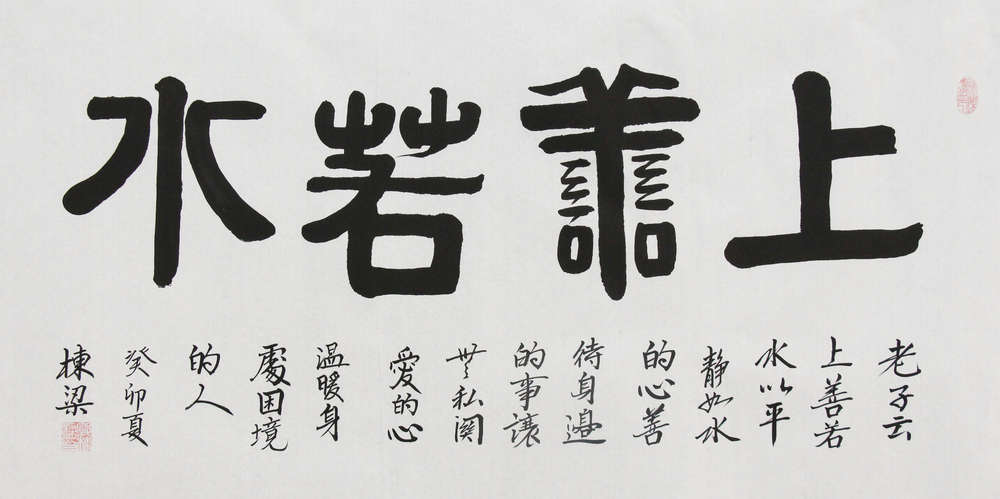 上善若水
老子云
上善若
水以平
静如水
的心善
待身邊
的事讓
無私関
愛的心
温暖身
處困境
的人
癸卯夏
棟梁